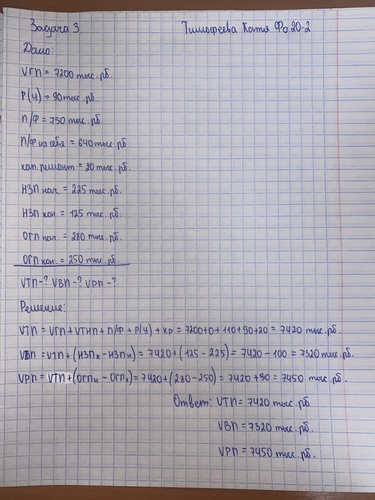 Задача 3 Тимофеева Катя Фо 20-2
Дано:
VГП = 7200 тыс. рб.
Р(У) = 90 тыс. рб.
П/Ф = 750 тыс. рб.
П/Ф на себя = 640 тыс. рб
кап. ремонт = 20 тыс. рб.
НЗП нач. = 225 тыс. рб.
НЗП кон. = 125 тыс. рб
ОГП нач. = 280 тыс. рб
ОГП кон. = 250 тыс. рб.
VТП-? VВП-? VРП-?
Решение:
VТП = VГП + VТНП + П/Ф + Р(У) + КР = 7200+0+110+90+20 = 7420 тыс. рб.
VВП = VТП + (НЗПк - НЗПн) = 7420 + (125 - 225) = 7420 - 100 = 7320 тыс. рб.
VРП = VТП + (ОГПн - ОГПк) = 7420 + (280 - 250) = 7420 + 30 = 7450 тыс. рб.
Ответ: VТП = 7420 тыс. рб
VВП = 7320 тыс. рб.
VРП = 7450 тыс. рб.